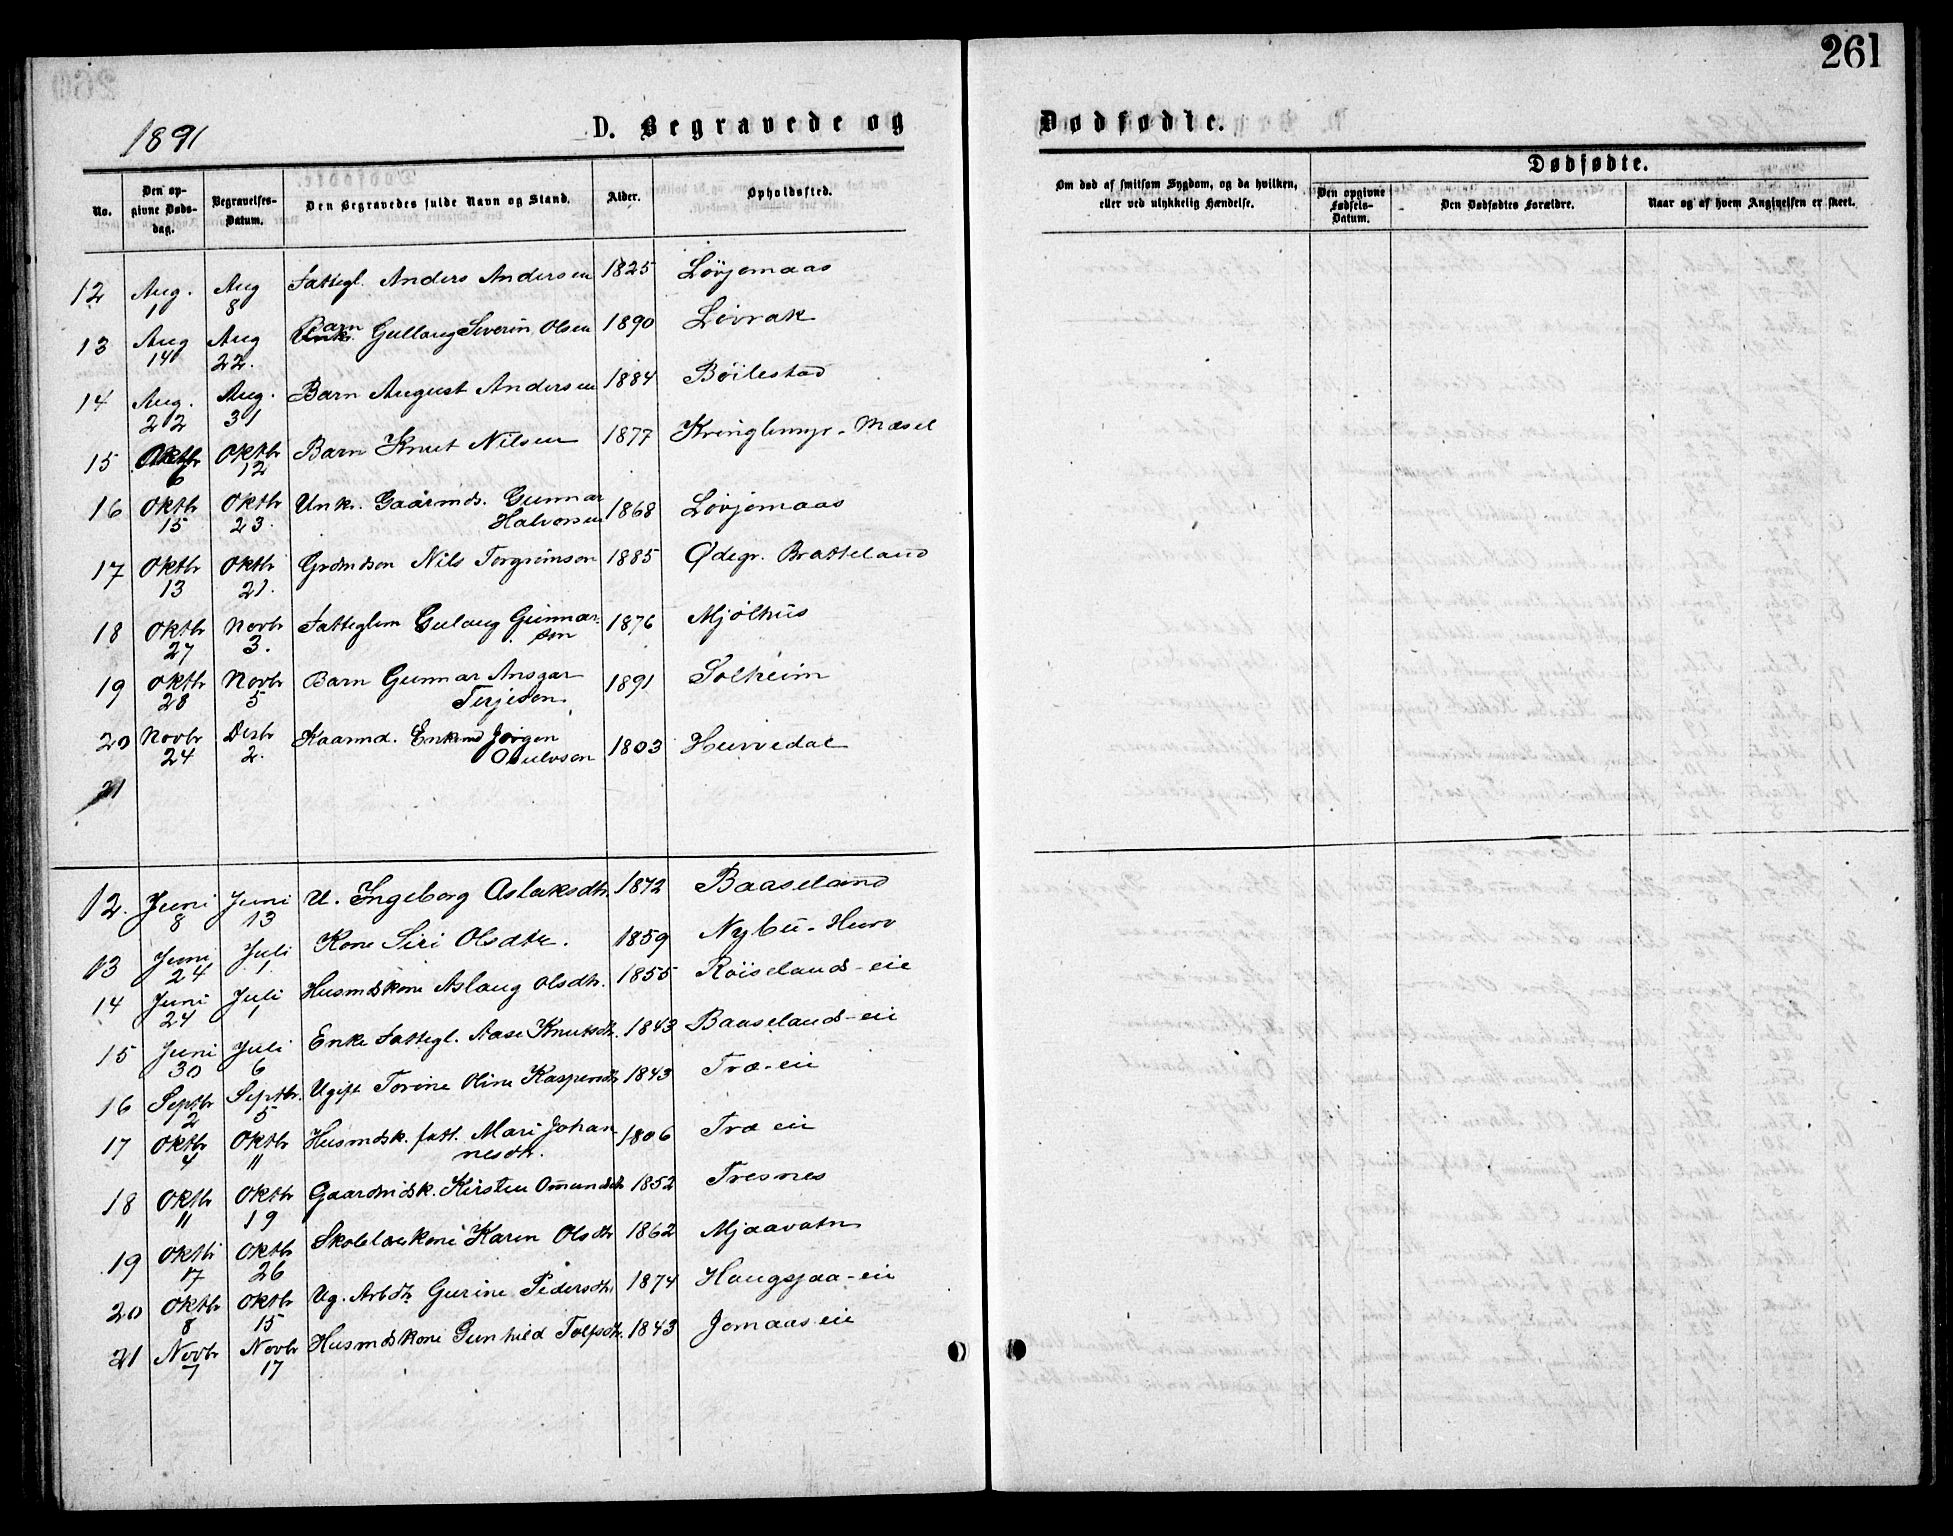 261
1891
D. Begravede og Dødfødte.
No. Den opgivne Dødsdag. Begravelses-Datum. Den Begravedes fulde Navn og Stand. Alder. Opholdssted.
Om død af smitsom Sygdom, og da hvilken, eller ved ulykkelig Hændelse. Dødfødte. Den opgivne Fødsels-Datum. Den Dødfødtes Forældre. Naar og af hvem Anginelsen er skeet.
12 Aug. 1 Aug 8 Fattegl. Anders Andersen 1825 Løvjomaas
13 Aug 14 Aug 22. Barn Gullaug Severin Olsen 1890 Løvrak
14 Aug. 22 Aug. 31 Barn August Andersen 1884 Böilestad
15 Oktbr 6 Oktbr 12 Barn Knut Nilsen 1877 Kringlemyr - Mæsel
16 Oktbr 15 Oktbr 23. Unk. Gaarmds. Gunnar Halvorsen 1868 Løvjomaas
17 Oktbr 13 Oktbr 21. Grdmdsøn Nils Torgrimson 1885 Ødegr. Bratteland
18 Oktbr 27 Novbr 3. Fatteglem Gulaug Gunnarsen 1876 Mjölhus
19 Oktbr 28 Novbr 5 Barn Gunnar Ansgar Terjeson. 1891 Solheim
20 Novbr 24 Desbr 2. Kaarmd. Enkemd Jörgen Oulvson 1803 Hurvedal
21
12. Juni 8 Juni 13 U. Ingeborg Aslaksdtr. 1872 Baaseland
13 Juni 24 Juli 1 Kone Siri Olsdtr. 1859 Nybu - Hurv
14 Juni 24 Juli 1 Husmdskone Aslaug Olsdtr. 1855 Röiseland - eie
15 Juni 30 Juli 6 Enke Fattegl. Aase Knutsdtr. 1843 Baaseland - eie
16 Septbr 2 Septbr. 5 Ugift Torine Oline Kaspersdtr 1843 Træ - eie
17 Oktbr 4 Oktbr 11 Husmdsk. fatt. Mari Johannesdtr. 1806 Træ eie
18 Oktbr 11 Oktbr 19 Gaardmdsk. Kirsten Omundsdtr 1852 Tresnes
19 Oktbr 17 Oktbr 26 Skolelærkone Karen Olsdtr 1862 Mjaavatn
20 Oktbr 8 Oktbr 15 Ug. Arbdtr Gurine Pedersdtr. 1874 Haugsjaa - eie
21 Novbr 7 Novbr 17 Husmdskone Gunhild Tolfsdtr. 1843 Jomaas eie